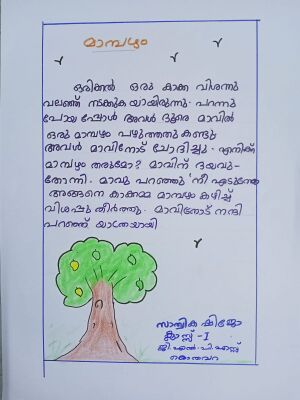 മാമ്പഴം
ഒരിക്കൽ ഒരു കാക്ക വിശന്നു
വലഞ്ഞ് നടക്കുക യായിരുന്നു. പറന്നു
പോയ പ്പോൾ അവൾ ദൂരെ മാവിൽ
ഒരു മാമ്പഴം പഴുത്തതു കണ്ടു
അവൾ മാവിനോട് ചോദിച്ചു. എനിക്ക്
മാമ്പഴം തരുമോ? മാവിന് ദയവു-
തോന്നി. മാവു പറഞ്ഞു 'നീ എടുത്തോ
അങ്ങനെ കാക്കമ്മ മാമ്പഴം കഴിച്ച്
വിശപ്പു തീർത്തു. മാവിനോട് നന്ദി
പറഞ്ഞ് യാത്രയായി
സാന്ദ്വിക ഷിജോ
ക്ലാസ്സ് - I
ജി.എൽ.പി.എസ്സ്